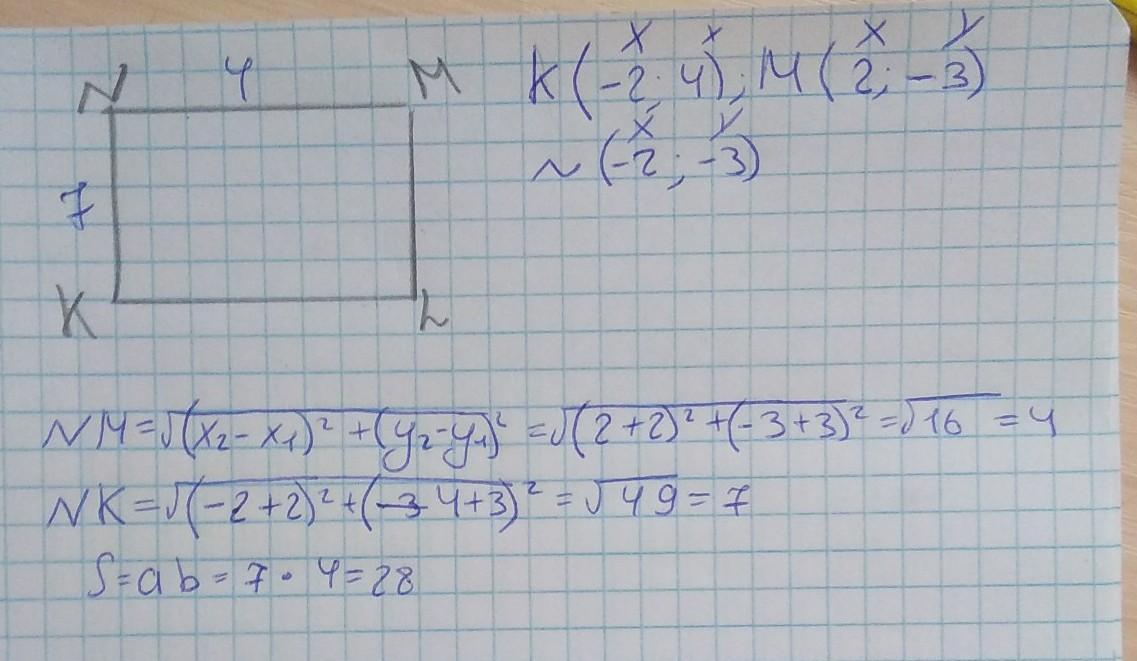 N 4 M
7
K L
x x x y
K(-2; 4); M(2; -3)
x y
N(-2; -3)
NM=√(x₂-x₁)²+(y₂-y₁)² =√(2+2)²+(-3+3)² =√16 =4
NK=√(-2+2)²+(4+3)² = √49 = 7
S=ab= 7·4=28